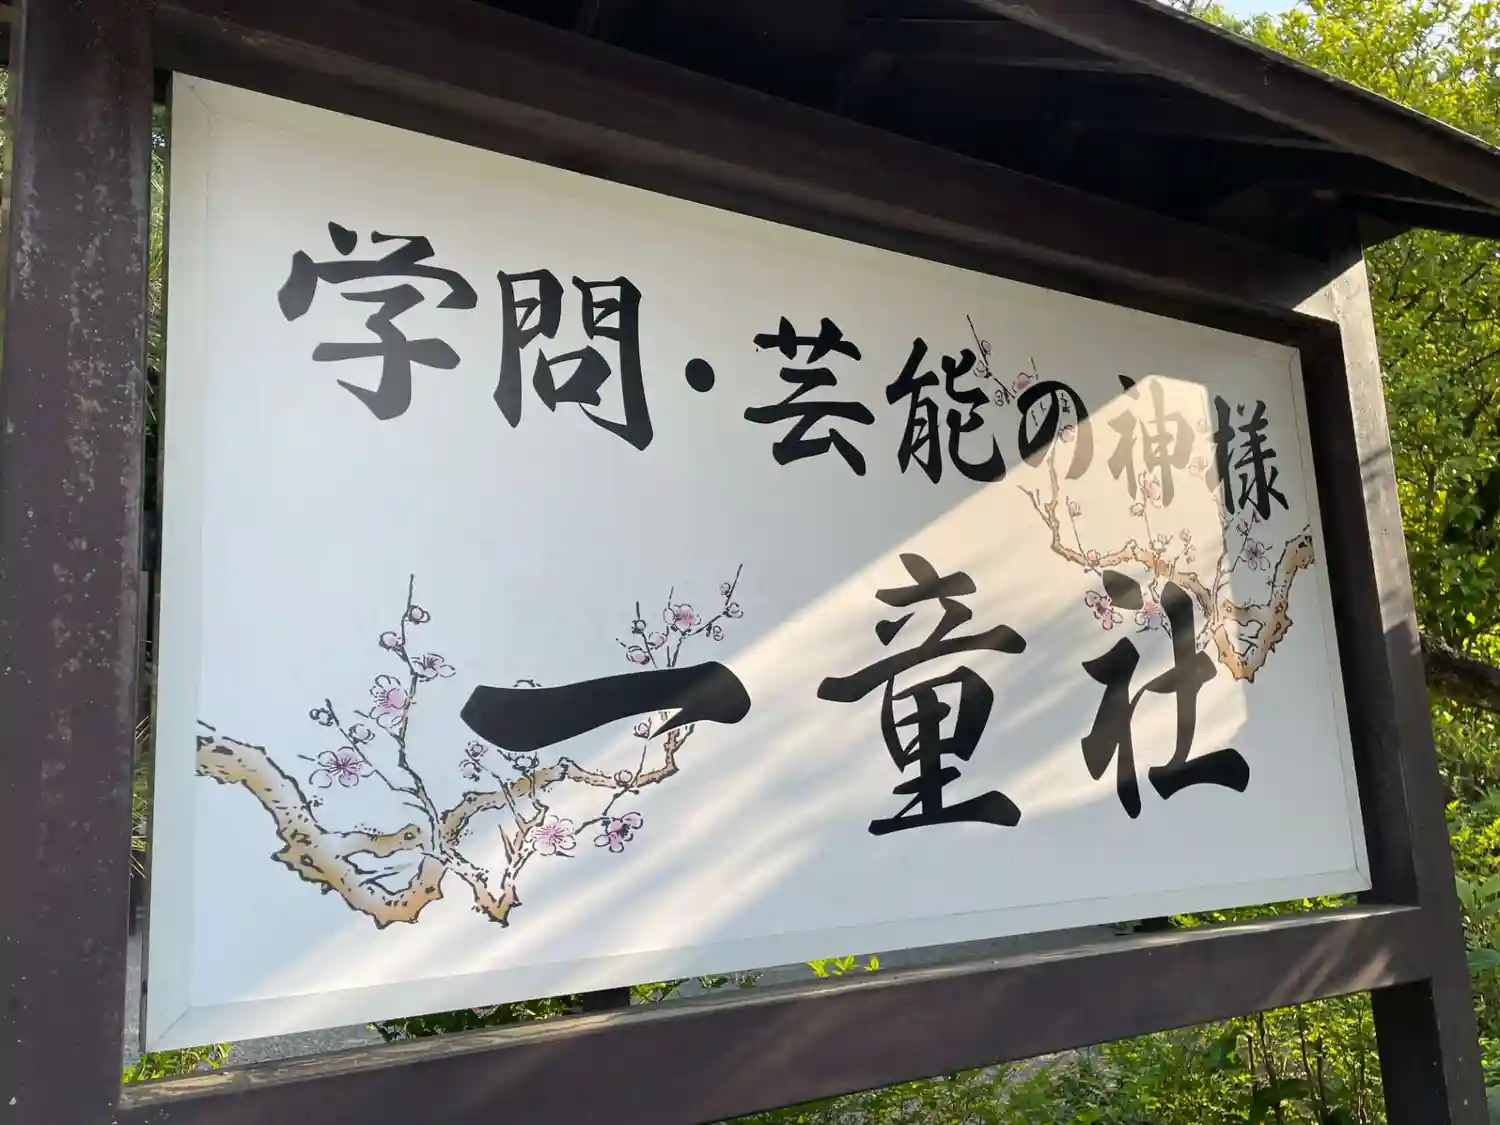 学問・芸能の神様
一童社